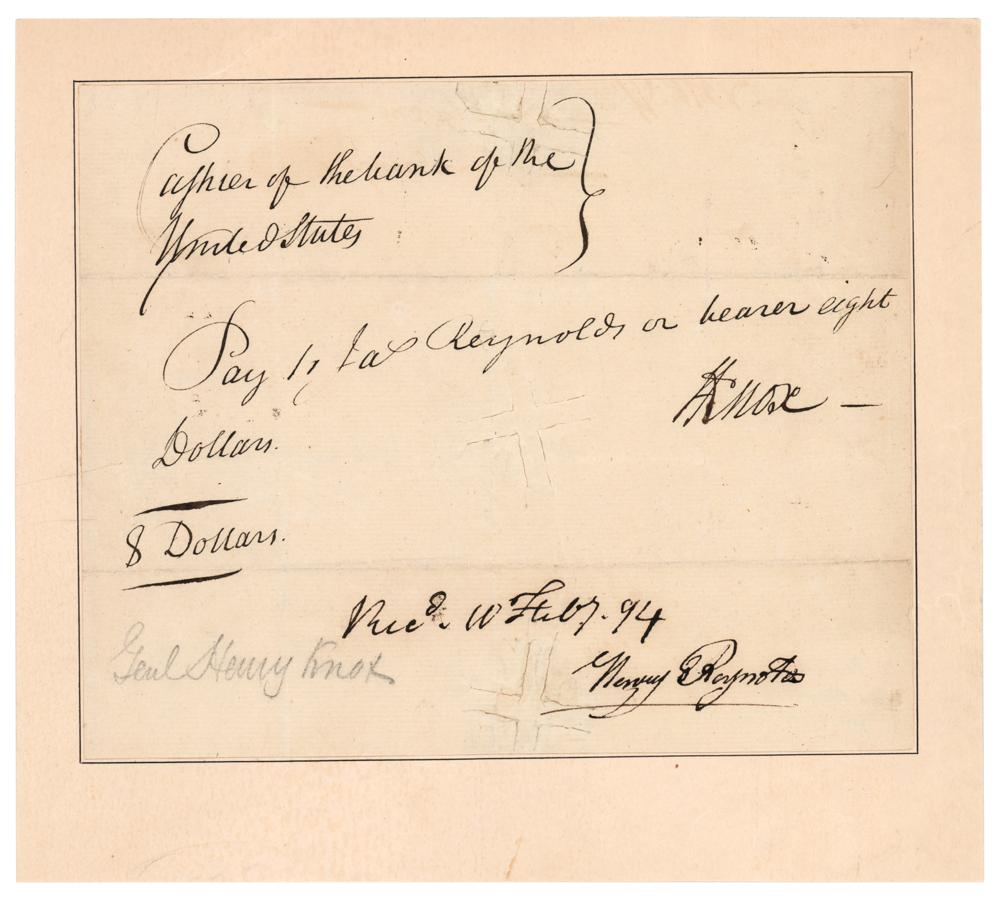 Cashier of the bank of the
United States
Pay to Jas Reynolds or bearer eight
HKnox —
Dollars.
8 Dollars.
Recd. 10 Feby. 94
Genl Henry Knox
Henry Reynolds